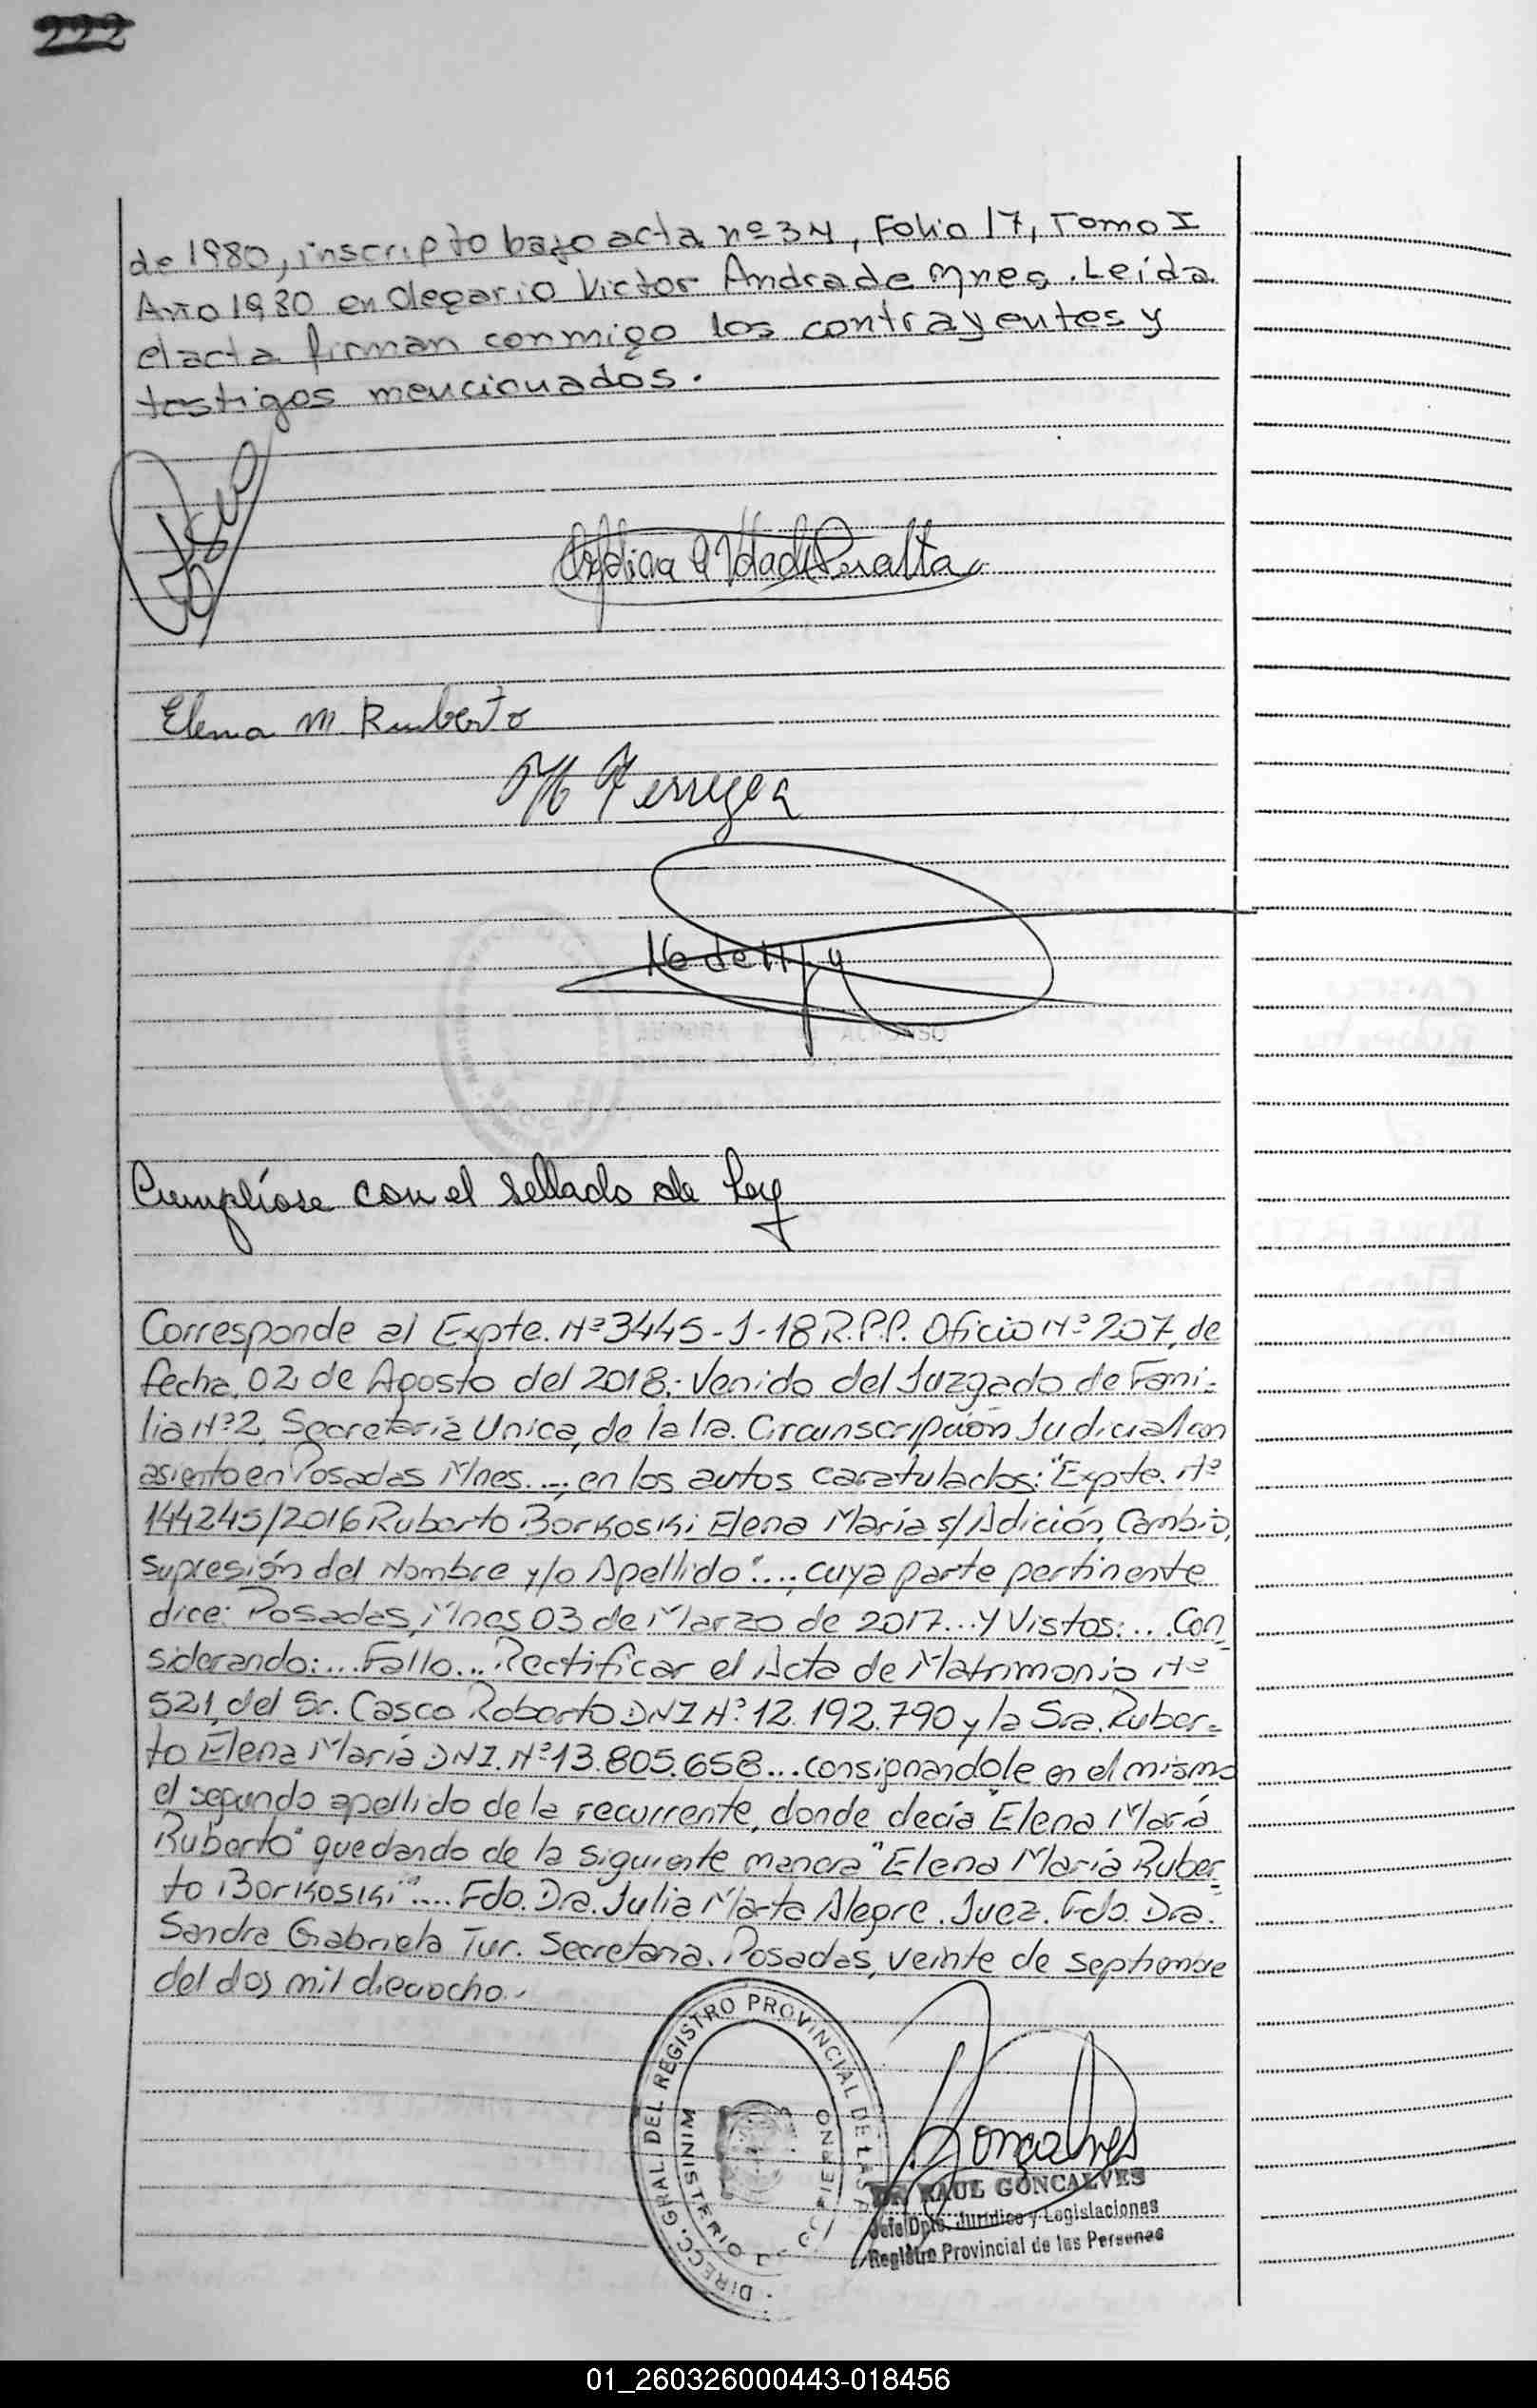 222
de 1980, inscripto bajo acta nº 34, Folio 17, Tomo I
Año 1980 en Olegario Victor Andrade Mnes. Leída
el acta firman conmigo los contrayentes y
testigos mencionados.
Peralta
Elena M. Ruberto
Cumpliose con el sellado de Ley
Corresponde al Expte. Nº 3445-J-18 R.P.P. Oficio Nº 207, de
fecha, 02 de Agosto del 2018; Venido del Juzgado de Fami-
lia Nº 2, Secretaría Unica, de la 1ra. Circunscripción Judicial con
asiento en Posadas Mnes...; en los autos caratulados: "Expte. Nº
144245/2016 Ruberto Borkoski Elena María s/Adición, Cambio,
supresión del Nombre y/o Apellido"...; cuya parte pertinente
dice: Posadas, Mnes 03 de Marzo de 2017... Y Vistos:... Con-
siderando:... Fallo... Rectificar el Acta de Matrimonio Nº
521, del Sr. Casco Roberto DNI Nº 12.192.790 y la Sra. Ruber-
to Elena María DNI. Nº 13.805.658... consignandole en el mismo
el segundo apellido de la recurrente, donde decía "Elena Mará
Ruberto" quedando de la siguiente manera "Elena María Ruber-
to Borkoski".... Fdo. Dra. Julia Marta Alegre. Juez. Fdo. Dra.
Sandra Gabriela Tur. Secretaria. Posadas, veinte de septiembre
del dos mil dieciocho.-
DIRECC. GRAL. DEL REGISTRO PROVINCIAL DE LAS
MINISTERIO DE GOBIERNO
Goncalves
DR. RAUL GONCALVES
Jefe Dpto. Jurídico y Legislaciones
Registro Provincial de las Personas
01_260326000443-018456